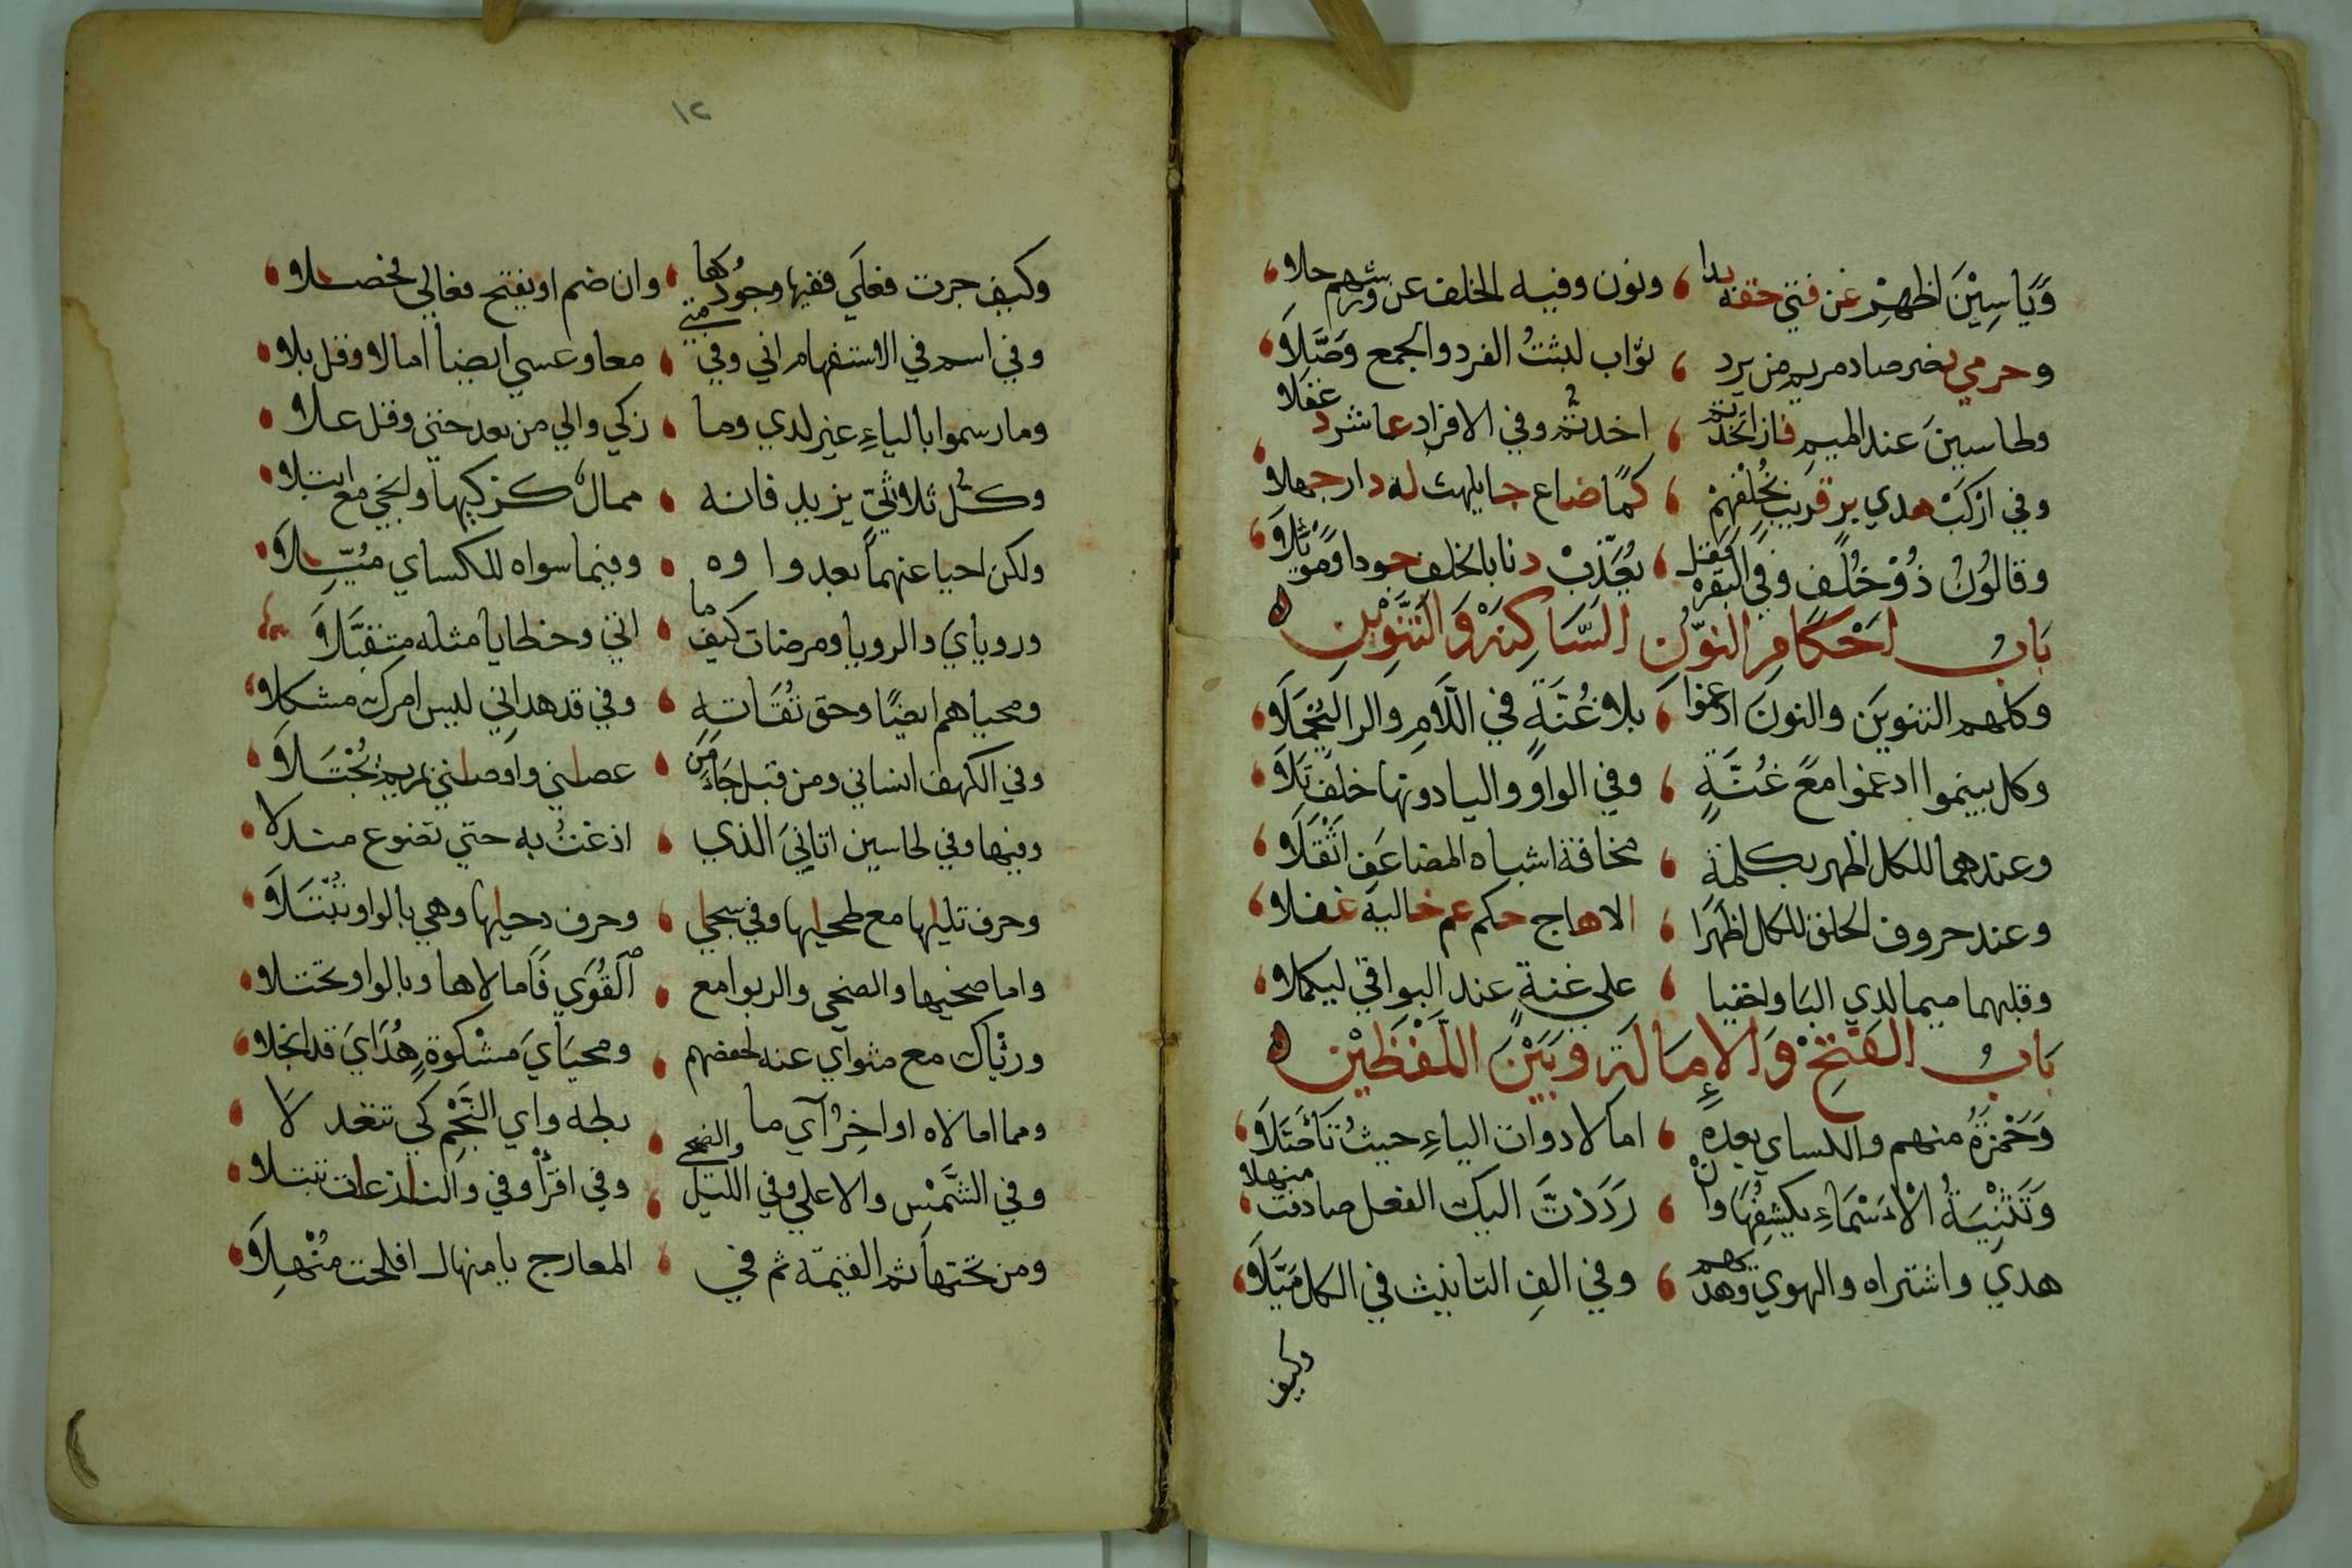 وَيَاسِيْنَ اظهِرْ عن فتي حقه بدا ، ونون وفيه الخلف عن ورشهم خلا
وحرمي نصر صاد مريم من يرد ، ثواب لبثتُ الفرد والجمع وَصَّلا
وطاسينَ عند الميم فاز اتخذتم ، اخذتم وفي الافراد عاشر دغفلا
وفي اركبْ هدي بر قريب بخُلْفهِمْ ، كما ضاع جا يلهث له دار جهلا
وقالُونُ ذُوْ خُلْف وفي البقره فقل ، يُعَذّبْ دنا بالخلف جودا وَمُوْبِلَا
بَابُ احْكَامِ النوُّنِ السَّاكِنَةِ وَالتَّنْوِيْنِ
وكلهم التنوينَ والنونَ ادغموا ، بلا غُنَّةٍ في اللَّامِ والرا ليُجْمَلَا
وكل بينموا ادغموا معَ غُنَّةٍ ، وفي الواوِ واليا دونها خلفٌ تَلَا
وعندهما للكل اظهر بكلمةٍ ، مخافة اشباه المضاعَفِ اثْقَلَا
وعند حروف الحلق للكل اظهِرَا ، الا هاج حكم عم خاليه غفلا
وقلبهما ميما لدي البا واخفيا ، علي غنةٍ عند البواقي ليكملا
بَابُ الفَتْحِ وَالإِمَالَةِ وَبَيْنَ اللَّفْظَيْنِ
وَحَمْزَةُ منهم والكساي بعده ، امالا ذوات الياءِ حيثُ تَأَصَّلَا
وَتَثْنِيَةُ الْاَسْمَاءِ يكشِفُهَا وانْ ، رَدَدْتَ اليك الفعل صادفت منهلا
هدي واشتراه والهوي وهداهم ، وفي الفِ التانيث في الكل مَيَّلَا
وكيف
١٢
وكيف جرت فعلَي ففيها وجُودُها ، وان ضم او يفتح فعالي فحصلا
وفي اسم في الاستفهام اني وفي متي ، معا وعسي ايضا امالا وقل بلا
وما رسموا بالياءِ غير لدي وما ، زكي والي من بعد حتي وقل علا
وكل ثلاثيّ يزيد فانه ، ممال كزكيها وانجي مع ابتلا
ولكن احيا عنهما بعد واوه ، وفيما سواه للكساي مُيِّلَا
وروياي والرويا ومرضات كيفما ، اتي وخطايا مثله متقبَّلَا
ومحياهم ايضًا وحق تُقَاتِهِ ، وفي قد هداني ليس امرك مشكلا
وفي الكهف انساني ومن قبل جاءَ من ، عصاني واوصاني بمريم يُجْتَلَا
وفيها وفي طاسين اتانيَ الذي ، اذعتُ به حتي تضوع مندلا
وحرف تليها مع طحيها وفي سجي ، وحرف دحيها وهي بالواو تُبْتَلَا
واما ضحيها والضحي والربوا مع ، القُوَي فَامالاها وبالواو تختلا
ورؤياك مع مثواي عنه لحفصهم ، ومحيَايَ مشكوةٍ هُدَايَ قد انجلا
ومما امالاه اواخِرُ آي ما ، بطه واي النَّجْمِ كي تتعدلا
وفي الشَّمْسِ والاعلي وفي الليل والضحي ، وفي اقرأ وفي والنازعات تبتلا
ومن تحتها ثم القيمة ثم في ، المعارج يا منهال افلحت مُنْهِلَا